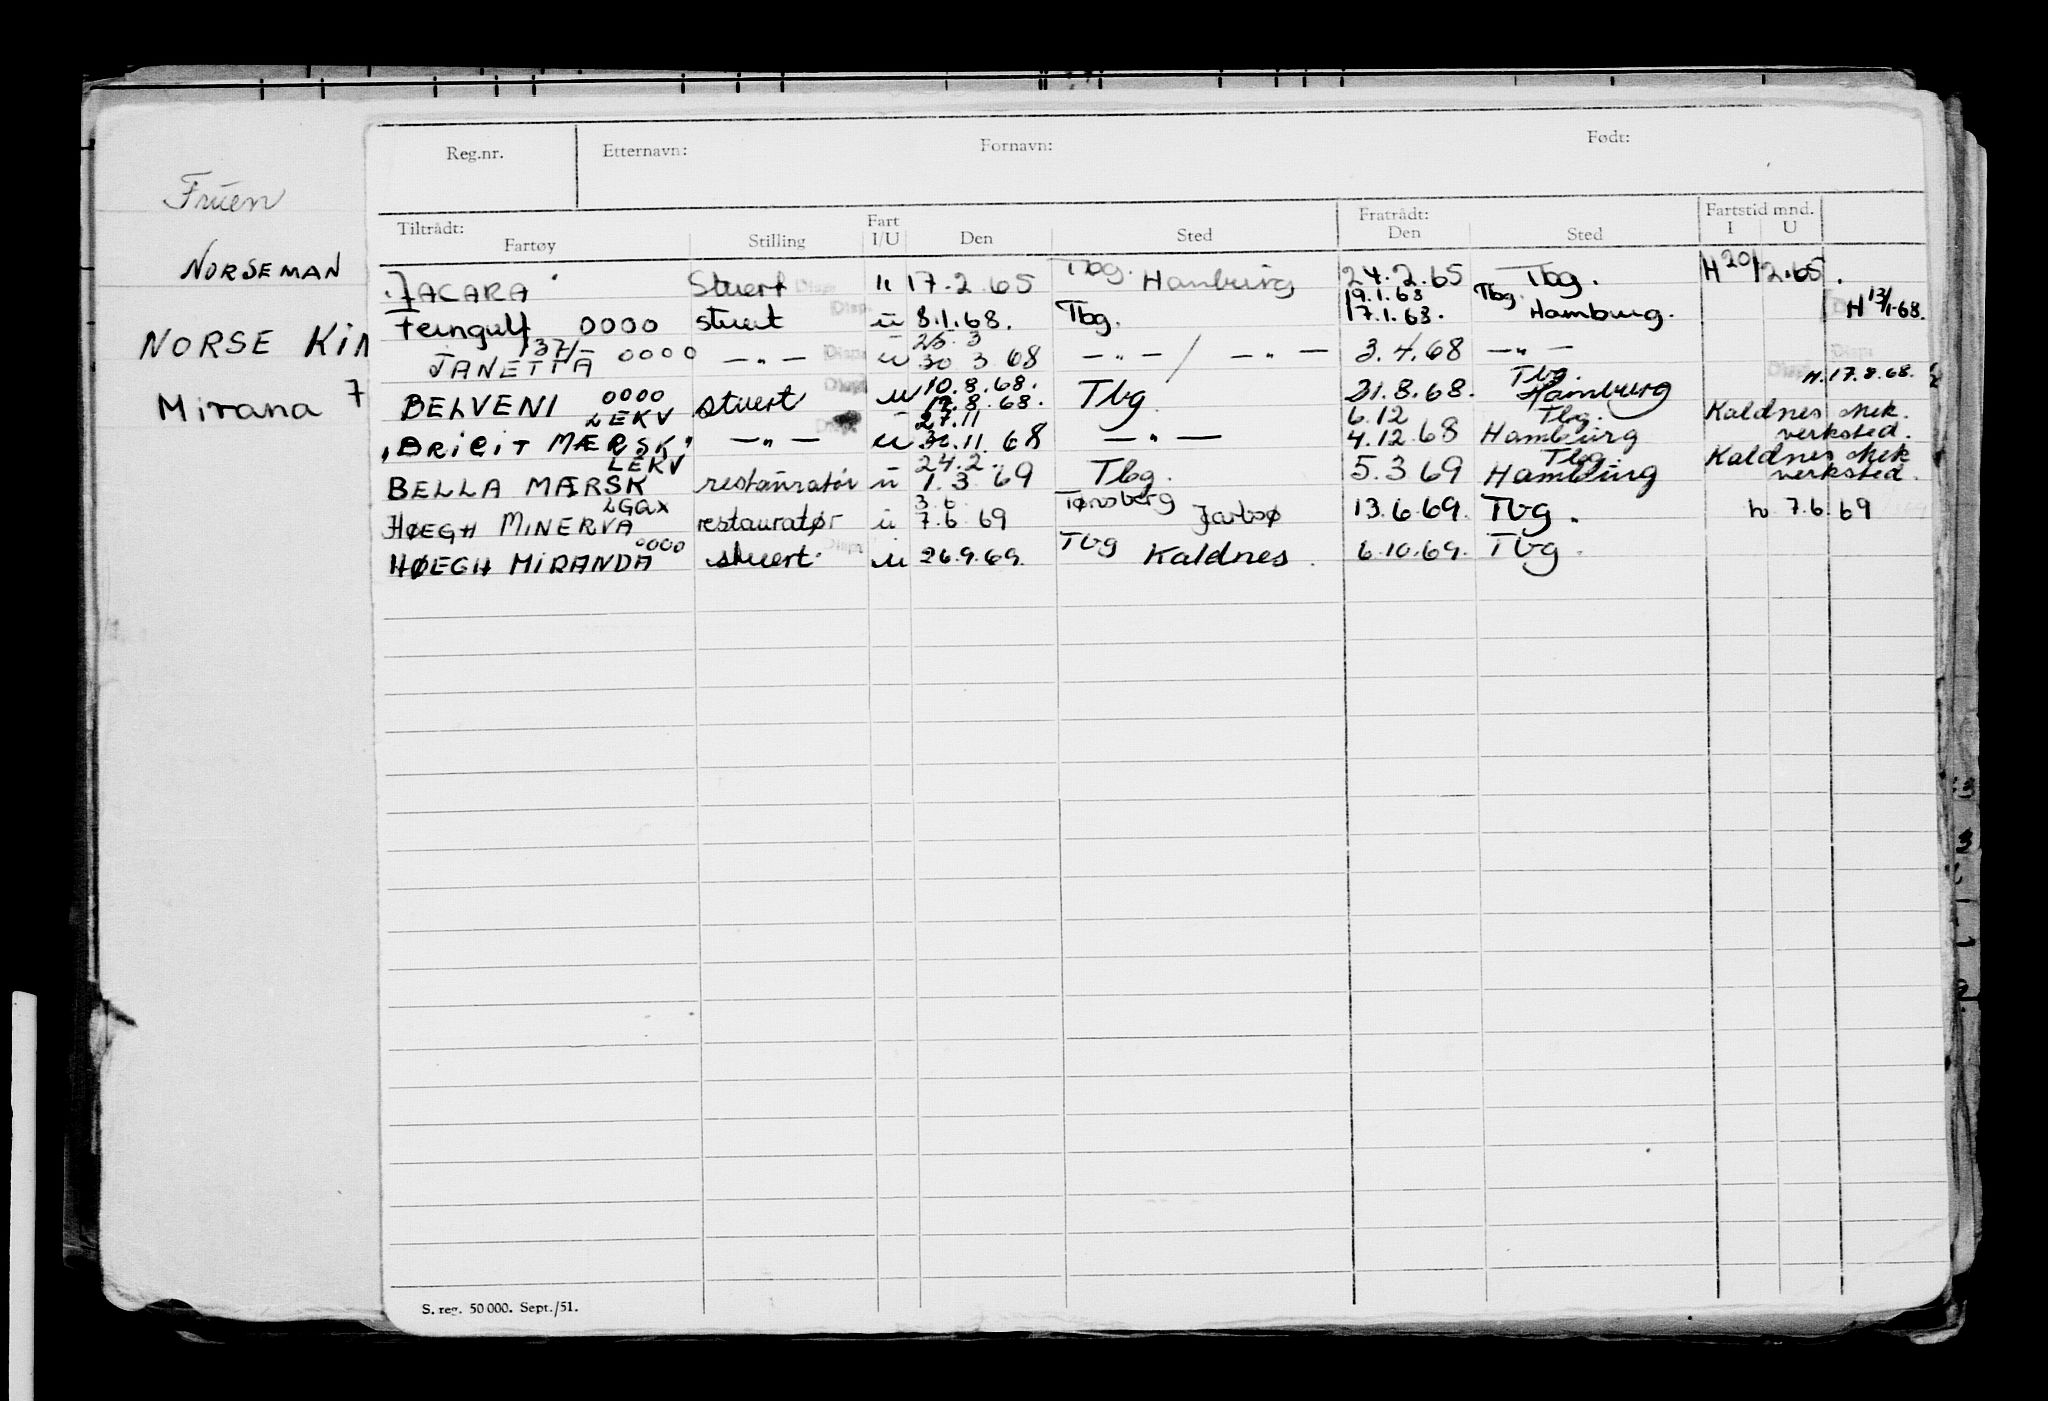 Fruen
NORSEMAN
NORSE KIN
Mirana 7
Reg.nr. Etternavn: Fornavn: Født:
Tiltrådt: Fartøy Stilling Fart I/U Den Sted Fratrådt: Den Sted Fartstid mnd. I U
JACARA Stuert u 17.2.65 Tbg. Hamburg 24.2.65 Tbg. H 20/2.65.
Ferngulf 0000 stuert u 8.1.68. Tbg. 19.1.68 17.1.68. Tbg. Hamburg. H 13/1-68.
JANETTA 137/- 0000 —"— u 25.3 30 3 68 —"— / —"— 3.4.68 —"—
BELVENI 0000 stuert u 10.8.68. 12.8.68. Tbg. 21.8.68. Tbg Hamburg H. 17.8.68.
"BRIGIT MÆRSK" LEKV —"— u 27.11 30.11.68 —"— 6.12 4.12.68 Tbg. Hamburg Kaldnes Mek. verksted.
BELLA MÆRSK LEKV restauratør u 24.2. 1.3.69 Tbg. 5.3.69 Tbg. Hamburg Kaldnes Mek verksted.
HØEGH MINERVA LGQX restauratør u 3.6. 7.6.69 Tønsberg Jarlsø 13.6.69. Tbg. h 7.6.69
HØEGH MIRANDA 0000 stuert. u 26.9.69. Tbg Kaldnes. 6.10.69. Tbg.
S. reg. 50 000. Sept./51.